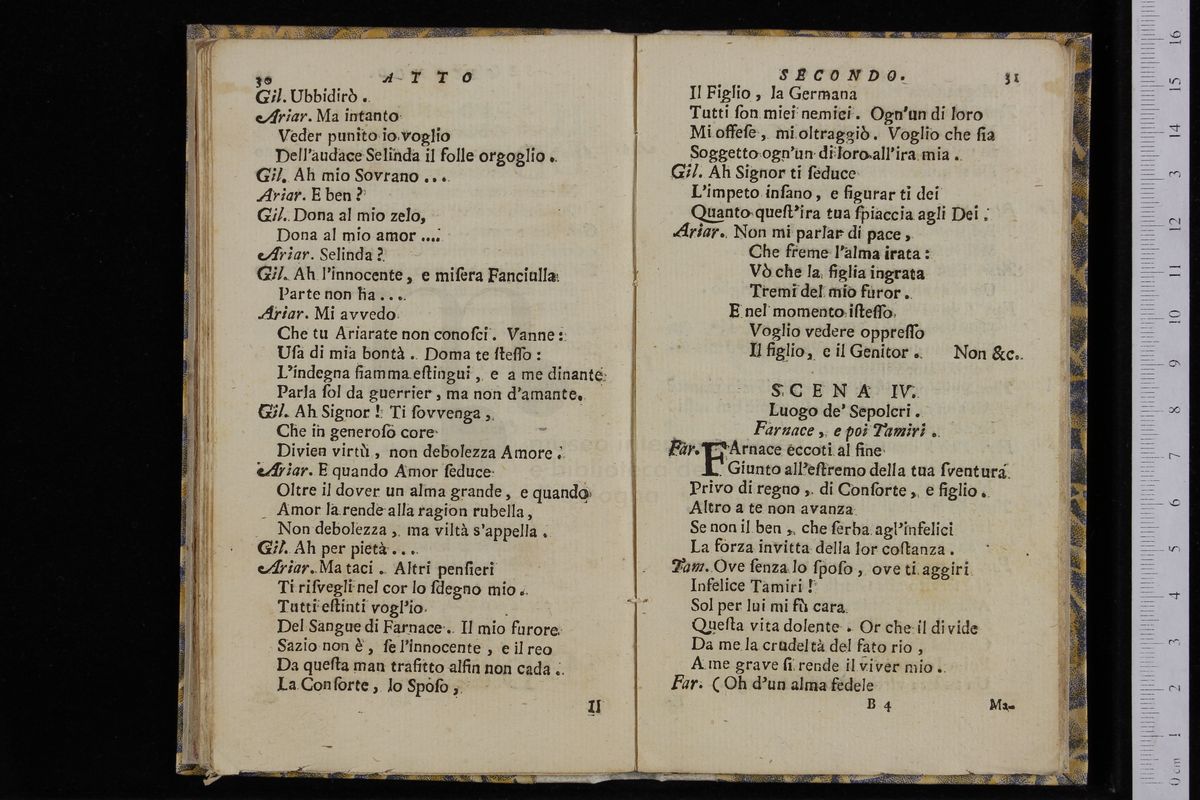 30 ATTO
Gil. Ubbidirò.
Ariar. Ma intanto
Veder punito io voglio
Dell'audace Selinda il folle orgoglio.
Gil. Ah mio Sovrano ...
Ariar. E ben?
Gil. Dona al mio zelo,
Dona al mio amor ....
Ariar. Selinda?
Gil. Ah l'innocente, e miſera Fanciulla
Parte non ha ...
Ariar. Mi avvedo
Che tu Ariarate non conoſci. Vanne:
Uſa di mia bontà. Doma te ſteſſo:
L'indegna fiamma eſtingui, e a me dinante
Parla ſol da guerrier, ma non d'amante.
Gil. Ah Signor! Ti ſovvenga,
Che in generoſo core
Divien virtù, non debolezza Amore.
Ariar. E quando Amor ſeduce
Oltre il dover un alma grande, e quando
Amor la rende alla ragion rubella,
Non debolezza, ma viltà s'appella.
Gil. Ah per pietà ...
Ariar. Ma taci. Altri penſieri
Ti riſvegli nel cor lo ſdegno mio.
Tutti eſtinti vogl'io
Del Sangue di Farnace. Il mio furore
Sazio non è, ſe l'innocente, e il reo
Da queſta man trafitto alfin non cada.
La Conſorte, lo Spoſo,
Il
SECONDO. 31
Il Figlio, la Germana
Tutti ſon miei nemici. Ogn'un di loro
Mi offeſe, mi oltraggiò. Voglio che ſia
Soggetto ogn'un di loro all'ira mia.
Gil. Ah Signor ti ſeduce
L'impeto inſano, e figurar ti dei
Quanto queſt'ira tua ſpiaccia agli Dei.
Ariar. Non mi parlar di pace,
Che freme l'alma irata:
Vò che la figlia ingrata
Tremi del mio furor.
E nel momento iſteſſo
Voglio vedere oppreſſo
Il figlio, e il Genitor. Non &c.
SCENA IV.
Luogo de' Sepolcri.
Farnace, e poi Tamiri.
Far. FArnace eccoti al fine
Giunto all'eſtremo della tua ſventura.
Privo di regno, di Conſorte, e figlio.
Altro a te non avanza
Se non il ben, che ſerba agl'infelici
La forza invitta della lor coſtanza.
Tam. Ove ſenza lo ſpoſo, ove ti aggiri
Infelice Tamiri!
Sol per lui mi fù cara
Queſta vita dolente. Or che il divide
Da me la crudeltà del fato rio,
A me grave ſi rende il viver mio.
Far. (Oh d'un alma fedele
B 4 Ma-
0 cm 1 2 3 4 5 6 7 8 9 10 11 12 13 14 15 16